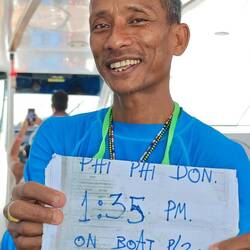 PHI PHI DON.
1:35 PM.
ON BOAT P/2